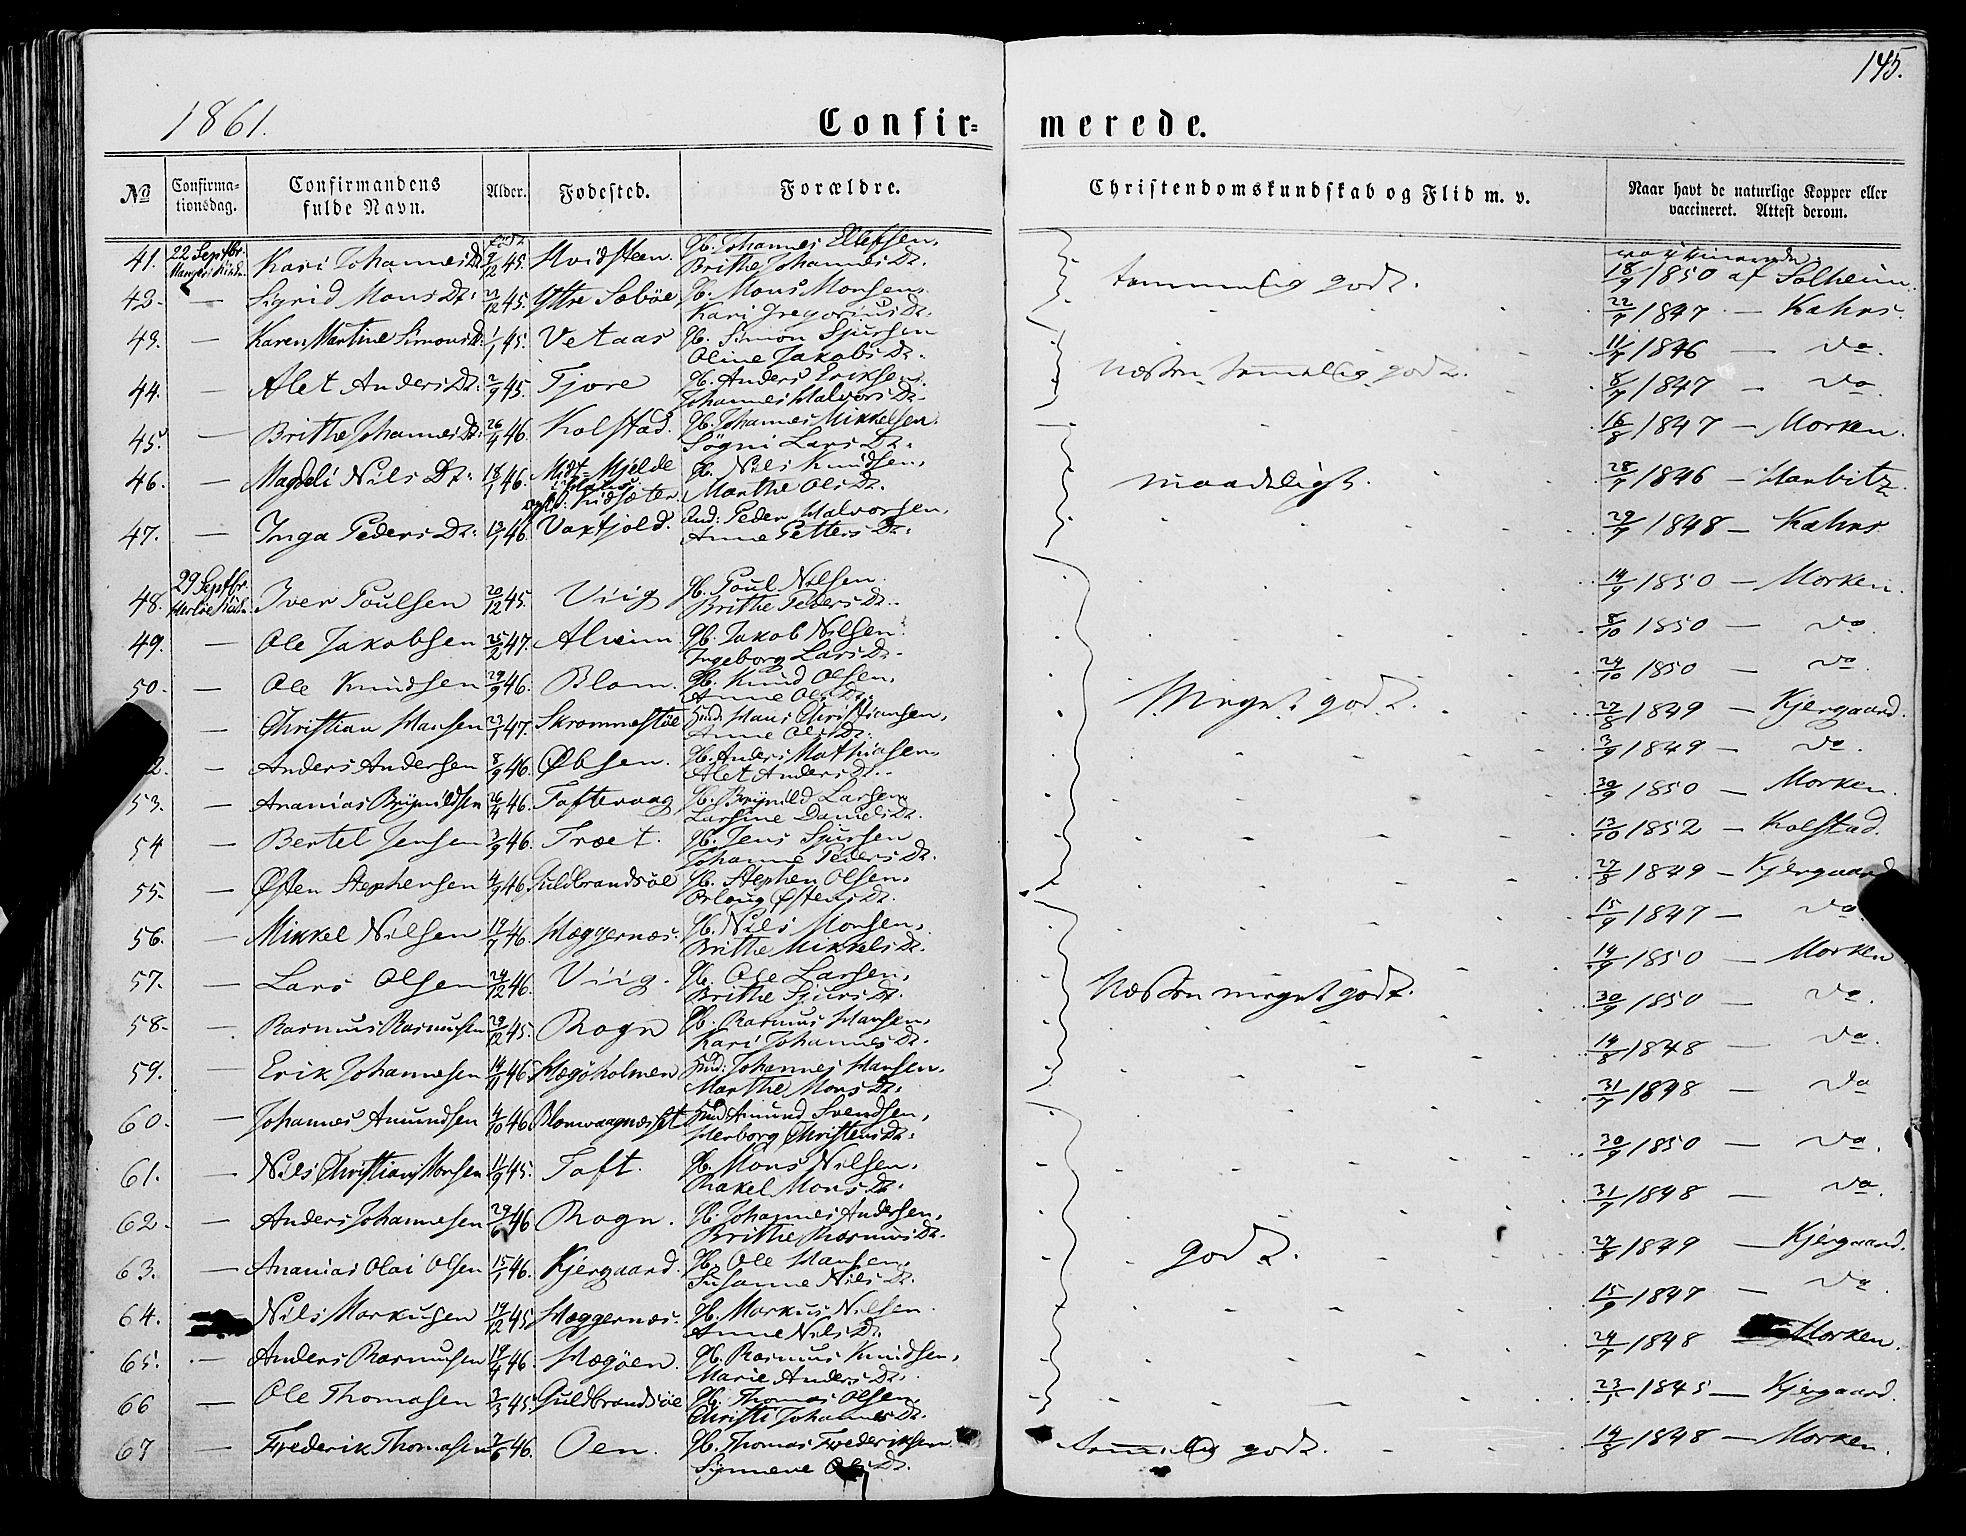 145.
1861.
Confir= merede.
No
Confirma-
tionsdag.
Confirmandens
fulde Navn.
Alder.
Fødested.
Forældre.
Christendomskundskab og Flid m. v.
Naar havt de naturlige Kopper eller
vaccineret. Attest derom.
41. 22 Septbr. Kari Johannes Dt. født 9/12 45. Hvidsteen Gb. Johannes Ellefsen,
Brithe Johannes Dt. 18/9 1850 af Solheim.
42. — Sigrid Mons Dt: 21/12 45. Yttre Sæbøe Gb. Mons Monsen,
Kari Gregorius Dt. tammelig godt. 22/7 1847 — Kahrs.
43. — Karen Martine Simons Dt: 1/1 45. Vetaas Gb. Simon Sjursen
Oline Jakobs Dt. 11/7 1846 — Do.
44. — Alet Anders Dt: 2/9 45. Tjore Gb. Anders Eriksen
Johannes Halvors Dt. Næsten tammelig godt. 8/7 1847 — Do.
45. — Brithe Johannes Dt: 26/4 46. Kolstad. Gb. Johannes Mikkelsen.
Søgni Lars Dt. 16/8 1847 — Morken.
46. — Magdeli Nils Dt: 18/1 46. Midt-Mjelde
Gb. Nils Knudsen,
Marthe Ols Dt. maadeligt. 28/7 1846 — Harbitz.
47. — Inga Peders Dt: 13/1 46. Vaxfjold. Ind: Peder Halvorsen,
Anne Petters Dt: 29/7 1848 — Kahrs
48. 29 Septbr. Herløe Kirke Iver Poulsen 20/12 45. Viig Gb. Poul Nilsen.
Brithe Peders Dt. 14/9 1850 — Morken.
49. — Ole Jakobsen 25/2 47. Alvim Gb. Jakob Nilsen.
Ingeborg Lars Dt. 8/10 1850 — Do.
50. — Ole Knudsen 29/9 46. Blom. Gb. Knud Olsen,
Anne Ols Dt. Meget godt. 24/10 1850 — Do
— Christian Hansen 23/1 47. Skrommestøe Ind: Hans Christiansen,
Anne Ols Dt. 27/8 1849 — Kjergaard.
2. — Anders Andersen 8/9 46. Øbsen. Gb. Anders Mathiasen,
Alet Anders Dt. 3/9 1849 — Do.
53. — Ananias Brynildsen 26/4 46. Toftevaag Gb. Brynild Larsen,
Larsine Daniels Dt. 30/9 1850 — Morken.
54 — Bertel Jensen 3/9 46. Træet. Gb. Jens Sjursen
Johanne Peders Dt. 13/10 1852 — Kolstad.
55. — Østen Stephensen 4/9 46 Guldbrandsøe Gb. Stephen Olsen,
Østens Dt. 27/8 1849 — Kjergaard
56. — Mikkel Nilsen 19/7 46. Hæggernæs. Gb. Nils Monsen,
Brithe Mikkels Dt. 15/9 1847 — Do
57. — Lars Olsen 24/12 46. Viig. Gb. Ole Larsen,
Brithe Sjurs Dt. Næsten meget godt. 14/9 1850 — Morken
58. — Rasmus Rasmusen 29/12 45. Rogn Gb. Rasmus Hansen,
Kari Johannes Dt. 30/9 1850 — Do.
59. — Erik Johannesen 14/11 46 Hægøholmen Ind: Johannes Hansen.
Marthe Mons Dt. 14/8 1848 — Do.
60. — Johannes Amundsen 4/10 46. Blomvaagnæsset Ind: Amund Svendsen,
Herborg Christens Dt. 31/7 1848 — Do
61. — Nils Christian Monsen 11/9 45. Toft. Gb. Mons Nilsen.
Rakel Mons Dt. 30/9 1850 — Do.
62. — Anders Johannesen 29/6 46 Rogn. Gb. Johannes Andersen,
Brithe Rasmus Dt. 31/7 1848 — Do.
63. — Ananias Olai Olsen 15/1 46. Kjergaard. Gb. Ole Hansen,
Susanne Nils Dt. godt. 27/8 1849 — Kjergaard.
64. Nils Markusen 19/12 45 Hæggernæs. Gb. Markus Nilsen.
Anne Nils Dt. 15/9 1847 — Do.
65. — Anders Rasmusen 19/4 46. Hægøen. Gb. Rasmus Knudsen,
Marie Anders Dt. 24/7 1848 Morken.
66 — Ole Thomasen 3/3 45. Guldbrandsøe Gb. Thomas Olsen
Christi Johannes Dt. 23/5 1845 — Kjergaard.
67 — Frederik Thomasen 7/6 46. Oen. Gb. Thomas Frederiksen
Synneve Ols Dt. tammelig godt. 14/8 1848 — Morken.